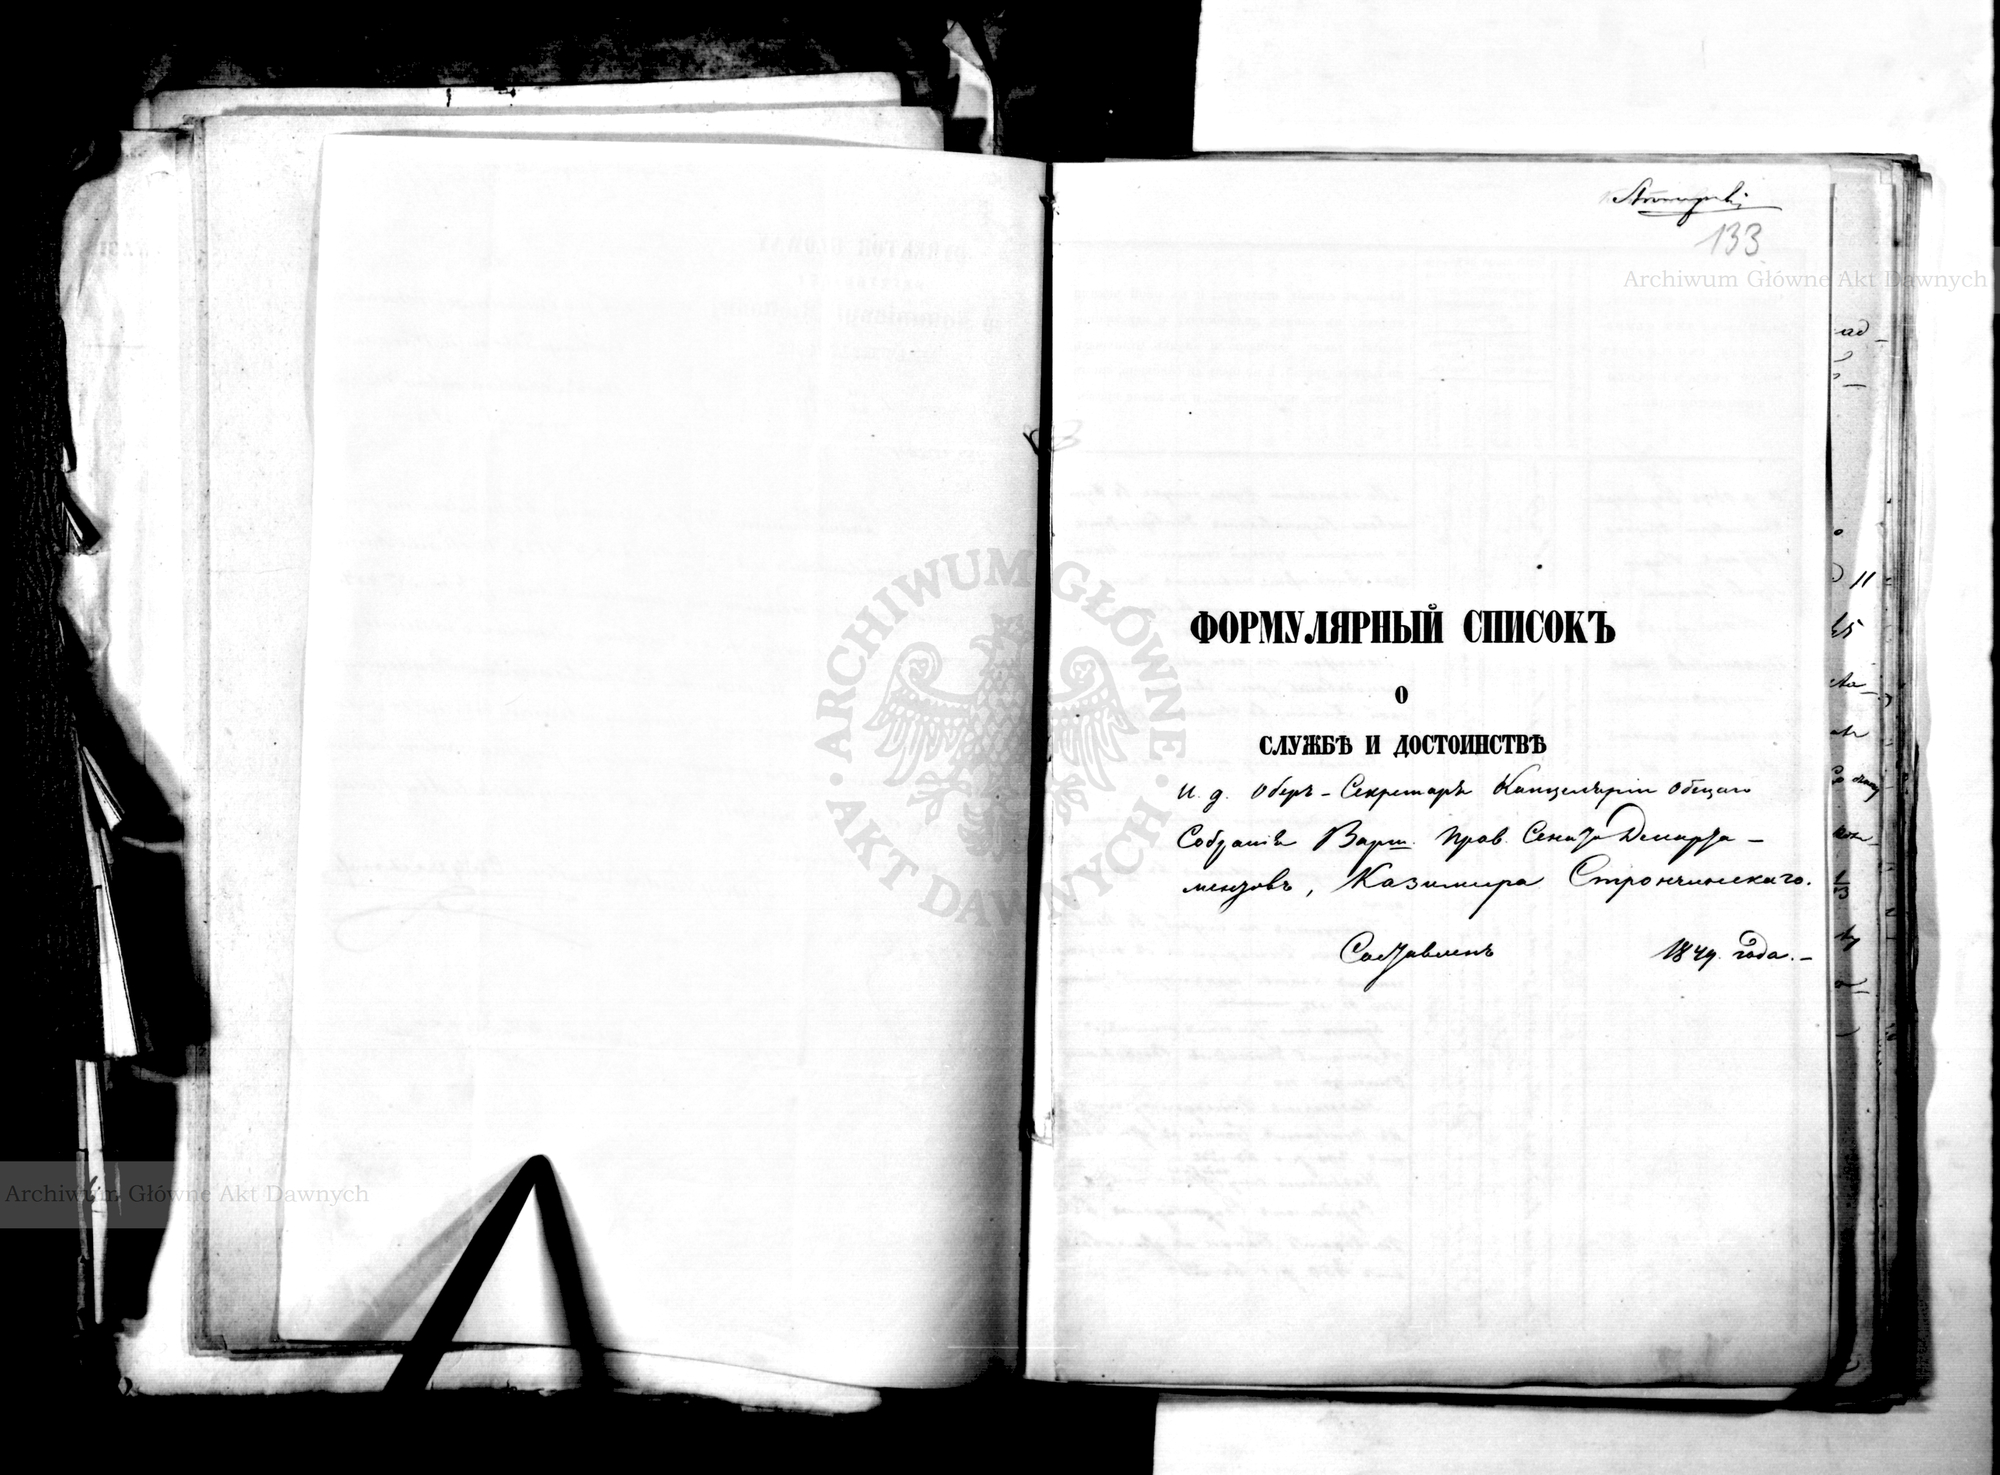 133
Archiwum Główne Akt Dawnych
ФОРМУЛЯРНЫЙ СПИСОКЪ
О
СЛУЖБѢ И ДОСТОИНСТВѢ
И. д. Оберъ-Секретаря Канцеляріи Общаго
Собранія Варш. Прав. Сената Департа-
ментовъ, Казимира Стрончинскаго.
Составленъ 1849 года.-
ARCHIWUM GŁÓWNE · AKT DAWNYCH ·
Archiwum Główne Akt Dawnych